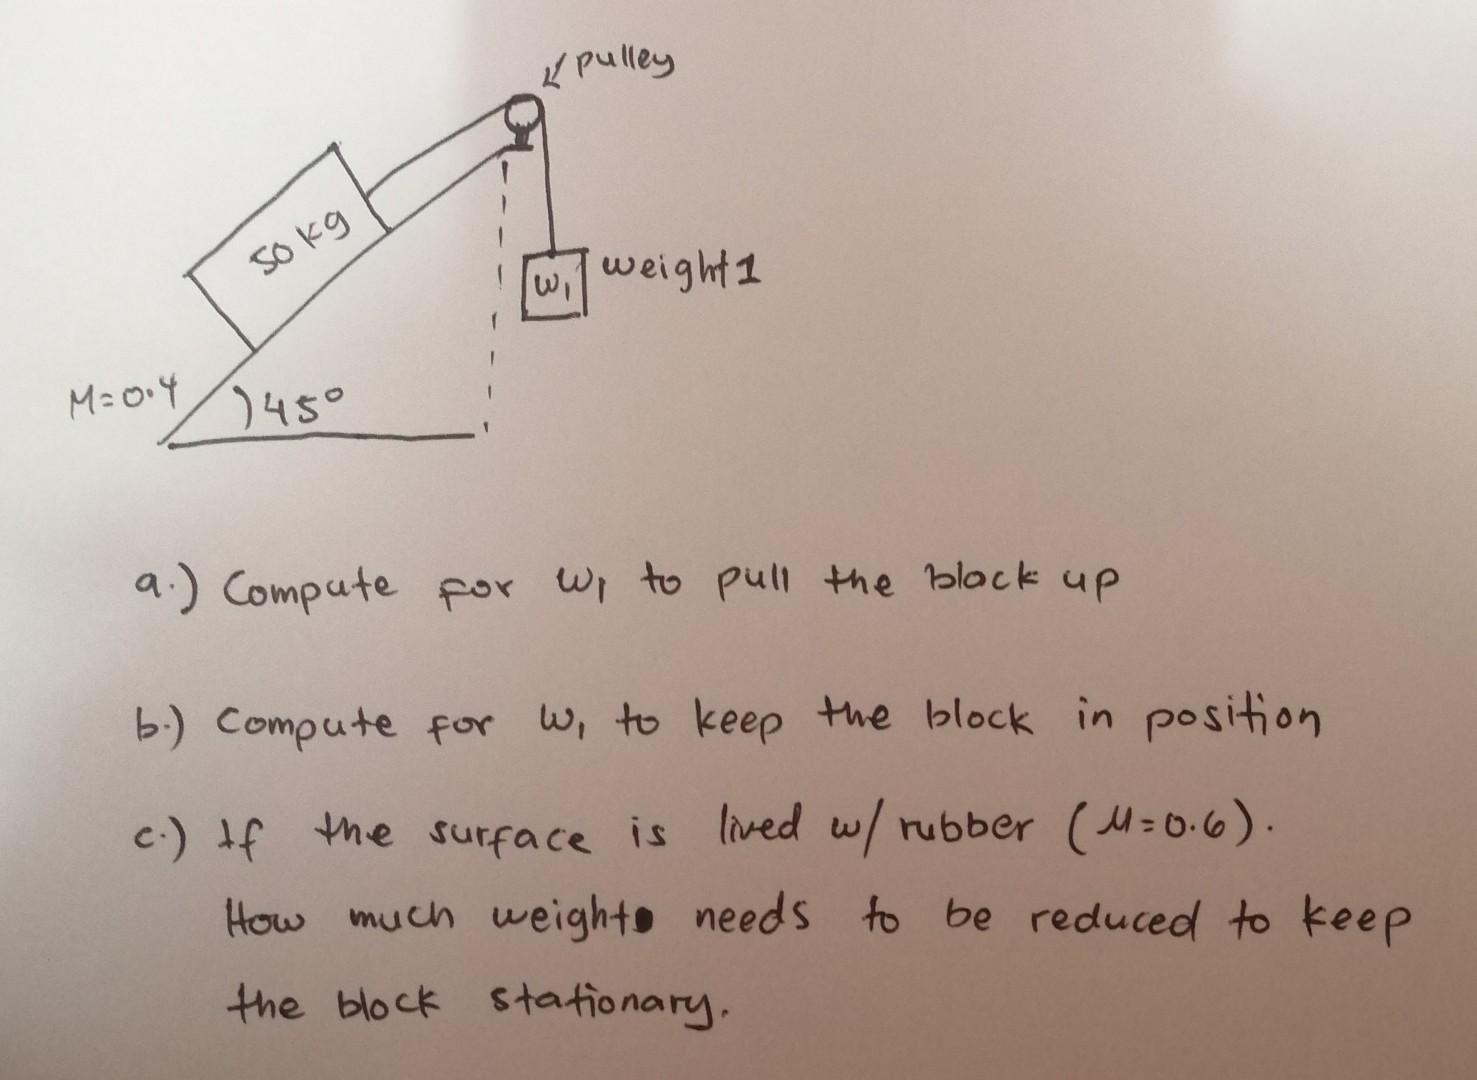 pulley
50 kg
W₁ weight 1
M=0.4
45°
a.) Compute for W₁ to pull the block up
b.) Compute for W₁ to keep the block in position
c.) If the surface is lived w/ rubber (M=0.6).
How much weight needs to be reduced to keep
the block stationary.